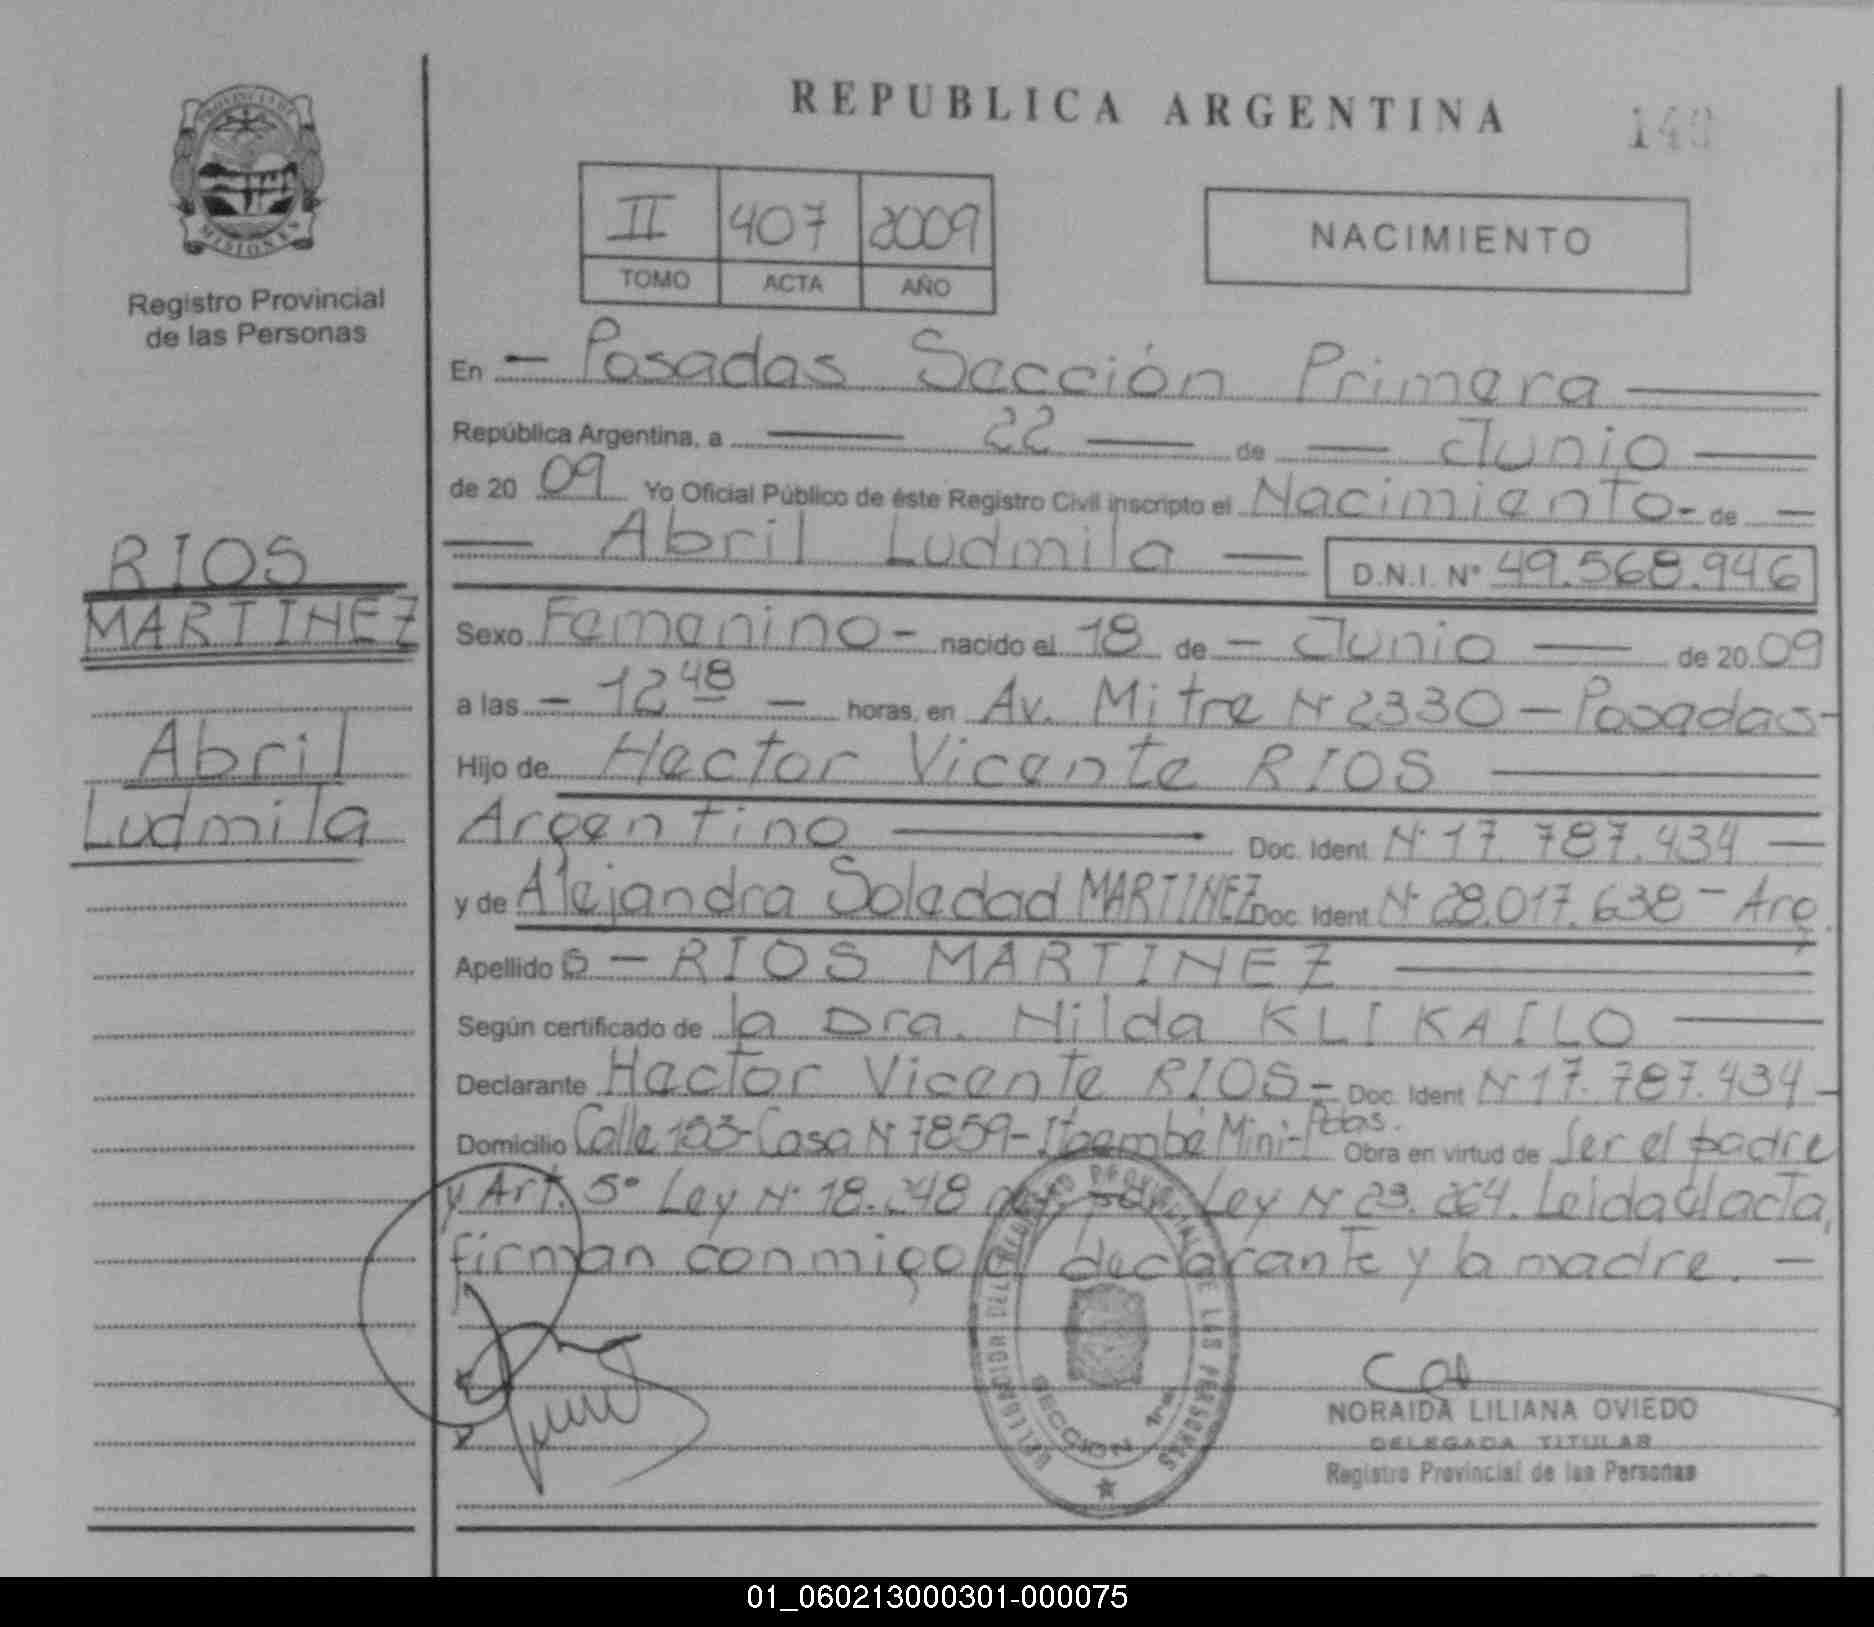 REPUBLICA ARGENTINA
PROVINCIA DE
MISIONES
Registro Provincial
de las Personas
II 407 2009
TOMO ACTA AÑO
NACIMIENTO
En - Posadas Sección Primera
República Argentina, a 22 de Junio
de 20 09 Yo Oficial Público de éste Registro Civil inscripto el Nacimiento - de -
Abril Ludmila D.N.I. Nº 49.568.946
RIOS
MARTINEZ
Abril
Ludmila
Sexo Femenino - nacido el 18 de - Junio de 20 09
a las - 12 48 - horas, en Av. Mitre Nº 2330 - Posadas -
Hijo de Hector Vicente RIOS
Argentino Doc. Ident Nº 17.787.434
y de Alejandra Soledad MARTINEZ Doc. Ident Nº 28.017.638 - Arg.
Apellido - RIOS MARTINEZ
Según certificado de la Dra. Nilda KLIKAILO
Declarante Hector Vicente RIOS - Doc. Ident Nº 17.787.434 -
Domicilio Calle 103 - Casa Nº 7859 - Itaembé Mini - Pdas. Obra en virtud de Ser el padre
y Art. 5º Ley Nº 18.248 Ley Nº 23.264. Leida el acta,
firman conmigo el declarante y la madre. -
DELEGACION DEL REGISTRO PROVINCIAL DE LAS PERSONAS
SECCION 1ra
NORAIDA LILIANA OVIEDO
DELEGADA TITULAR
Registro Provincial de las Personas
01_060213000301-000075